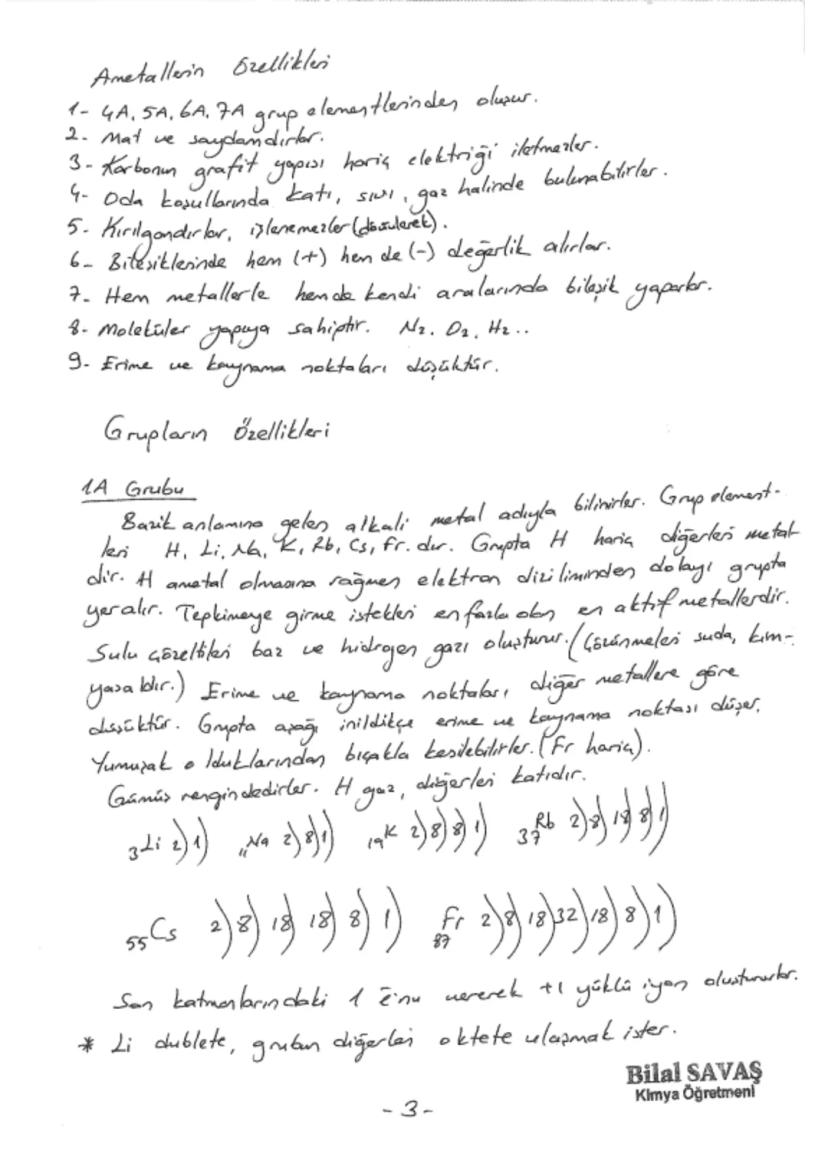 Ametallerin Özellikleri
1- 4A, 5A, 6A, 7A grup elementlerinden oluşur.
2- Mat ve saydamdırlar.
3- Karbonun grafit yapısı hariç elektriği iletmezler.
4- Oda koşullarında katı, sıvı, gaz halinde bulunabilirler.
5- Kırılgandırlar, işlenemezler (dövülerek).
6- Bileşiklerinde hem (+) hem de (-) değerlik alırlar.
7- Hem metallerle hemde kendi aralarında bileşik yaparlar.
8- Moleküler yapıya sahiptir. N2, O2, H2..
9- Erime ve kaynama noktaları düşüktür.
Grupların Özellikleri
1A Grubu
Bazik anlamına gelen alkali metal adıyla bilinirler. Grup element-
leri H, Li, Na, K, Rb, Cs, Fr. dur. Grupta H hariç diğerleri metal-
dir. H ametal olmasına rağmen elektron diziliminden dolayı grupta
yeralır. Tepkimeye girme istekleri en fazla olan en aktif metallerdir.
Sulu çözeltileri baz ve hidrojen gazı oluşturur. (Çözünmeleri suda, kim-
yasaldır.) Erime ve kaynama noktaları, diğer metallere göre
düşüktür. Grupta aşağı inildikçe erime ve kaynama noktası düşer.
Yumuşak olduklarından bıçakla kesilebilirler. (Fr hariç).
Gümüş rengindedirler. H gaz, diğerleri katıdır.
3Li 2) 1) 11Na 2) 8) 1) 19K 2) 8) 8) 1) 37Rb 2) 8) 18) 8) 1)
55Cs 2) 8) 18) 18) 8) 1) 87Fr 2) 8) 18) 32) 18) 8) 1)
Son katmanlarındaki 1 ē'nu vererek +1 yüklü iyon oluştururlar.
* Li dublete, grubun diğerleri oktete ulaşmak ister.
Bilal SAVAŞ
Kimya Öğretmeni
- 3 -